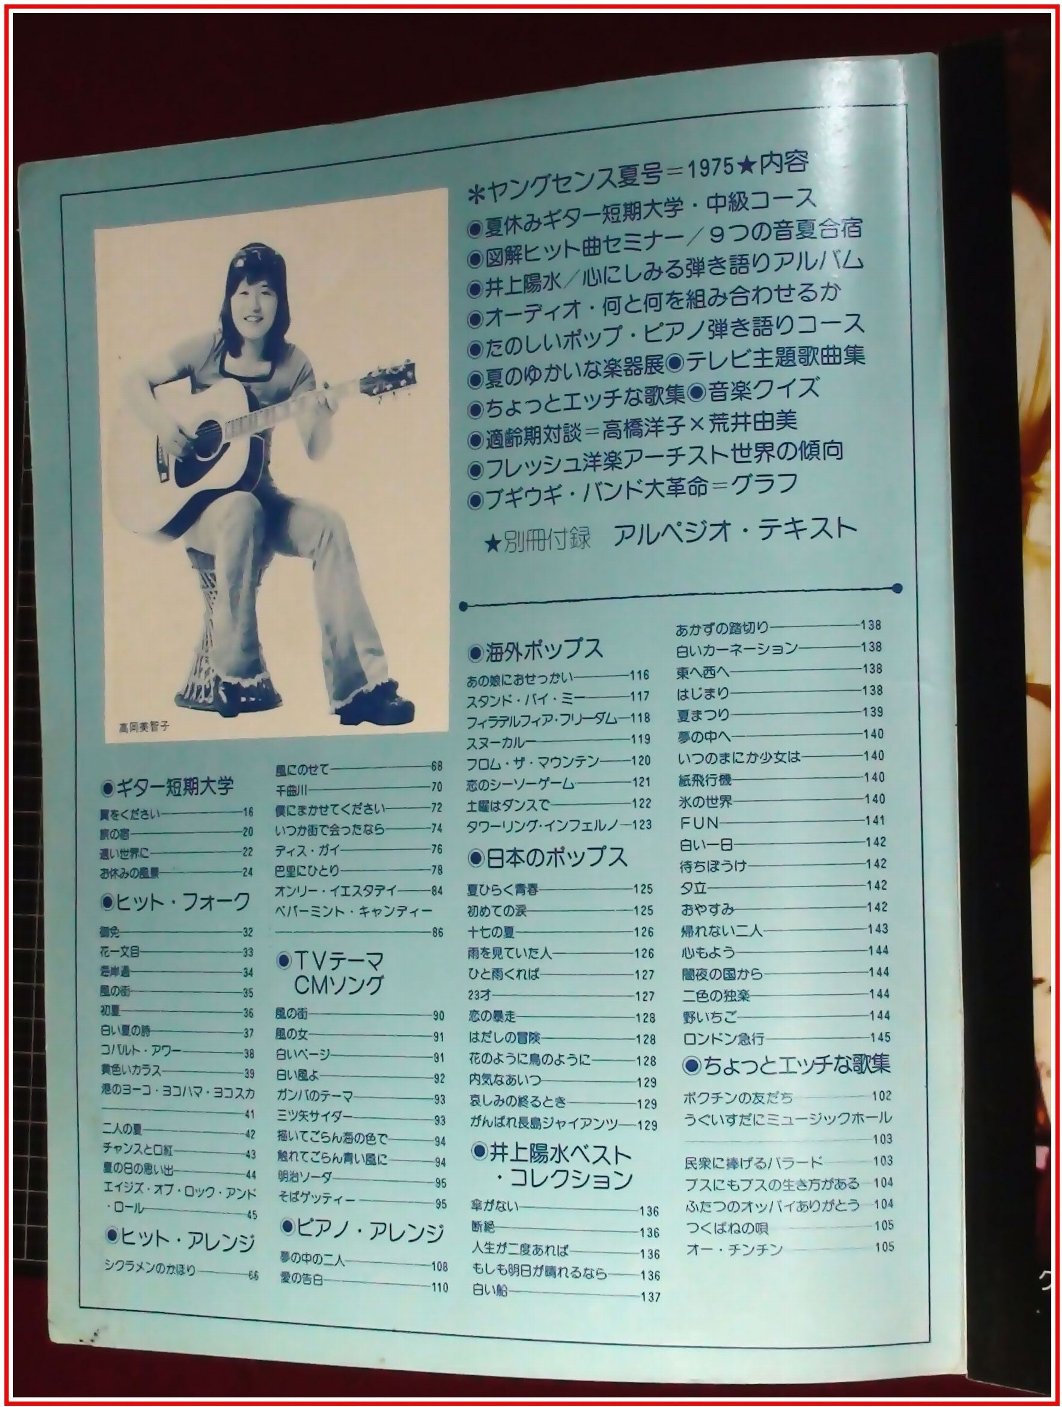 ＊ヤングセンス夏号＝1975★内容
◉夏休みギター短期大学・中級コース
◉図解ヒット曲セミナー／９つの音夏合宿
◉井上陽水／心にしみる弾き語りアルバム
◉オーディオ・何と何を組み合わせるか
◉たのしいポップ・ピアノ弾き語りコース
◉夏のゆかいな楽器展◉テレビ主題歌曲集
◉ちょっとエッチな歌集◉音楽クイズ
◉適齢期対談＝高橋洋子×荒井由美
◉フレッシュ洋楽アーチスト世界の傾向
◉ブギウギ・バンド大革命＝グラフ
★別冊付録 アルペジオ・テキスト
高岡美智子
◉ギター短期大学
翼をください――16
旅の宿――20
遠い世界に――22
お休みの風景――24
◉ヒット・フォーク
御免――32
花一文目――33
海岸通――34
風の街――35
初夏――36
白い夏の詩――37
コバルト・アワー――38
黄色いカラス――39
港のヨーコ・ヨコハマ・ヨコスカ
――41
二人の夏――42
チャンスと口紅――43
夏の日の思い出――44
エイジズ・オブ・ロック・アンド
・ロール――45
◉ヒット・アレンジ
シクラメンのかほり――66
風にのせて――68
千曲川――70
僕にまかせてください――72
いつか街で会ったなら――74
ディス・ガイ――76
巴里にひとり――78
オンリー・イエスタデイ――84
ペパーミント・キャンディー
――86
◉ＴＶテーマ
ＣＭソング
風の街――90
風の女――91
白いページ――91
白い風よ――92
ガンバのテーマ――93
三ツ矢サイダー――93
描いてごらん海の色で――94
触れてごらん青い風に――94
明治ソーダ――95
そばゲッティー――95
◉ピアノ・アレンジ
夢の中の二人――108
愛の告白――110
◉海外ポップス
あの娘におせっかい――116
スタンド・バイ・ミー――117
フィラデルフィア・フリーダム――118
スヌーカルー――119
フロム・ザ・マウンテン――120
恋のシーソーゲーム――121
土曜はダンスで――122
タワーリング・インフェルノ――123
◉日本のポップス
夏ひらく青春――125
初めての涙――125
十七の夏――126
雨を見ていた人――126
ひと雨くれば――127
23才――127
恋の暴走――128
はだしの冒険――128
花のように鳥のように――128
内気なあいつ――129
哀しみの終るとき――129
がんばれ長島ジャイアンツ――129
◉井上陽水ベスト
・コレクション
傘がない――136
断絶――136
人生が二度あれば――136
もしも明日が晴れるなら――136
白い船――137
あかずの踏切り――138
白いカーネーション――138
東へ西へ――138
はじまり――138
夏まつり――139
夢の中へ――140
いつのまにか少女は――140
紙飛行機――140
氷の世界――140
ＦＵＮ――141
白い一日――142
待ちぼうけ――142
夕立――142
おやすみ――142
帰れない二人――143
心もよう――144
闇夜の国から――144
二色の独楽――144
野いちご――144
ロンドン急行――145
◉ちょっとエッチな歌集
ボクチンの友だち――102
うぐいすだにミュージックホール
――103
民衆に捧げるバラード――103
ブスにもブスの生き方がある――104
ふたつのオッパイありがとう――104
つくばねの唄――105
オー・チンチン――105